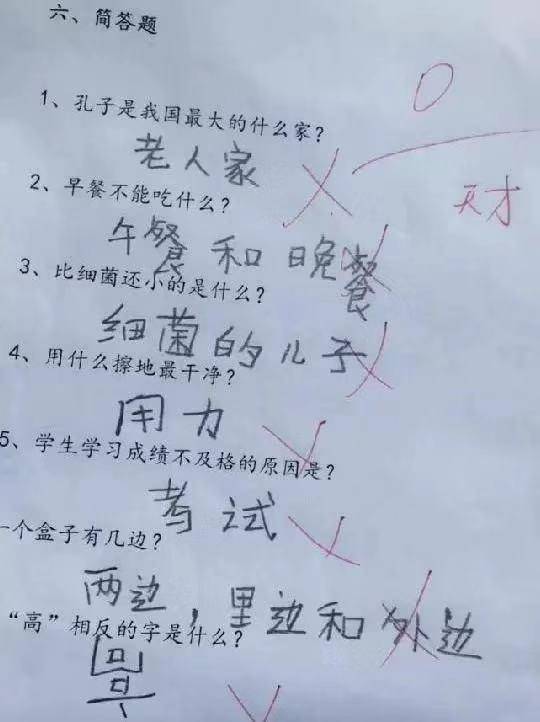 六、简答题
0
1、孔子是我国最大的什么家?
老人家
天才
2、早餐不能吃什么?
午餐和晚餐
3、比细菌还小的是什么?
细菌的儿子
4、用什么擦地最干净?
用力
5、学生学习成绩不及格的原因是?
考试
一个盒子有几边?
两边,里边和外边
“高”相反的字是什么?